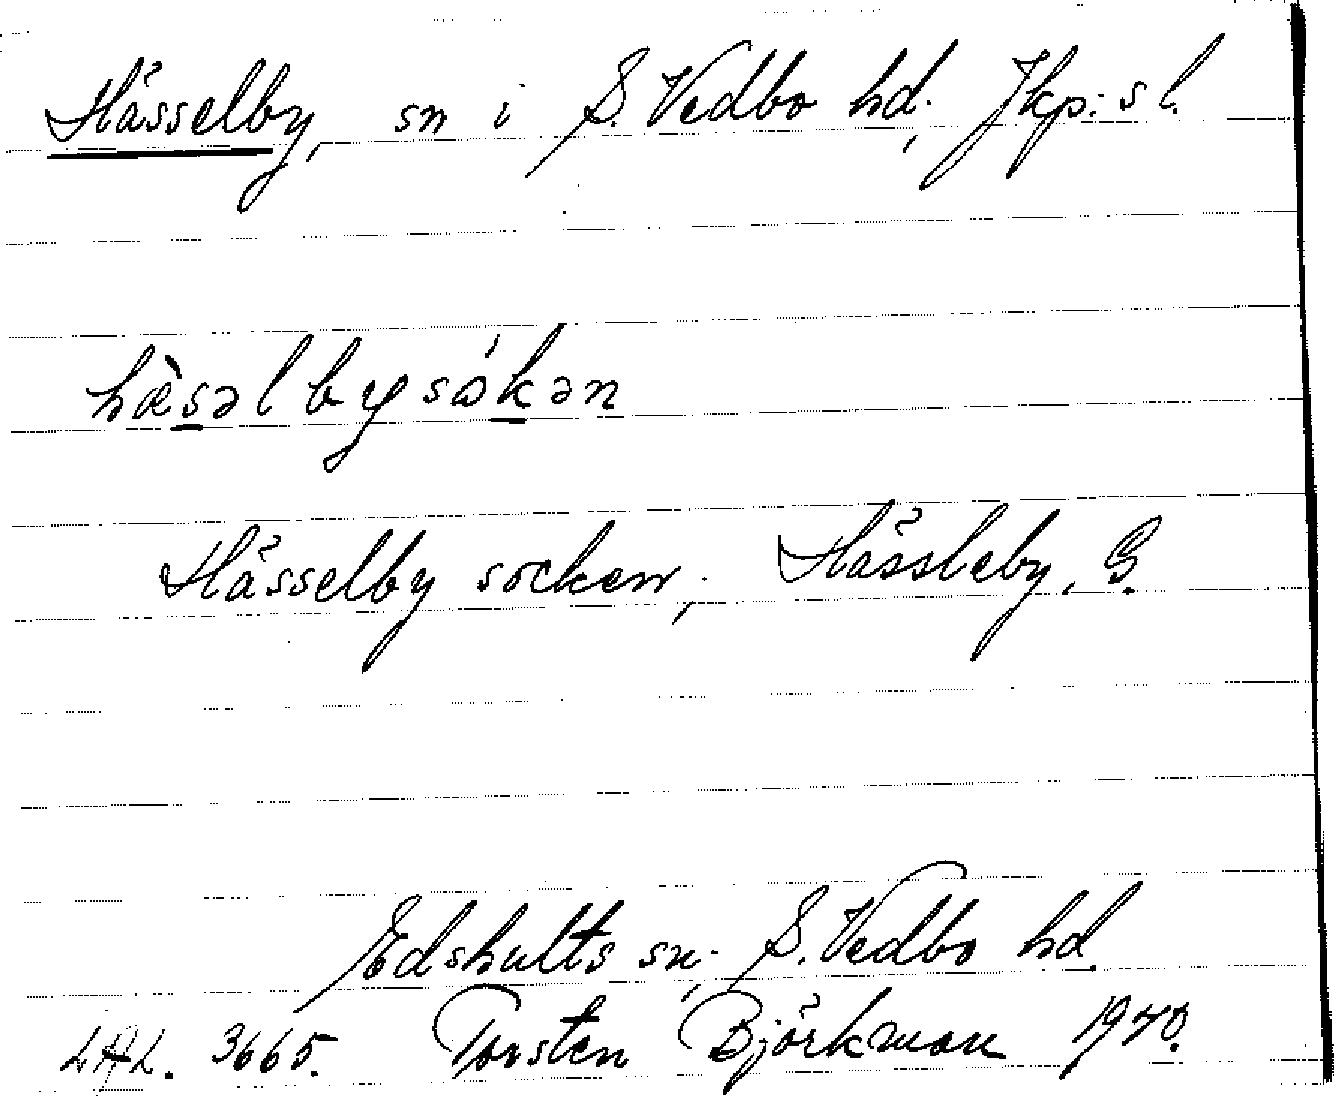 Hässelby, sn i S. Vedbo hd, Jkp:s l.
hæ̀səlbysókən
Hässelby socken, Hässleby, G.
Edshults sn, S. Vedbo hd.
LAL. 3665. Torsten Björkman 1970.